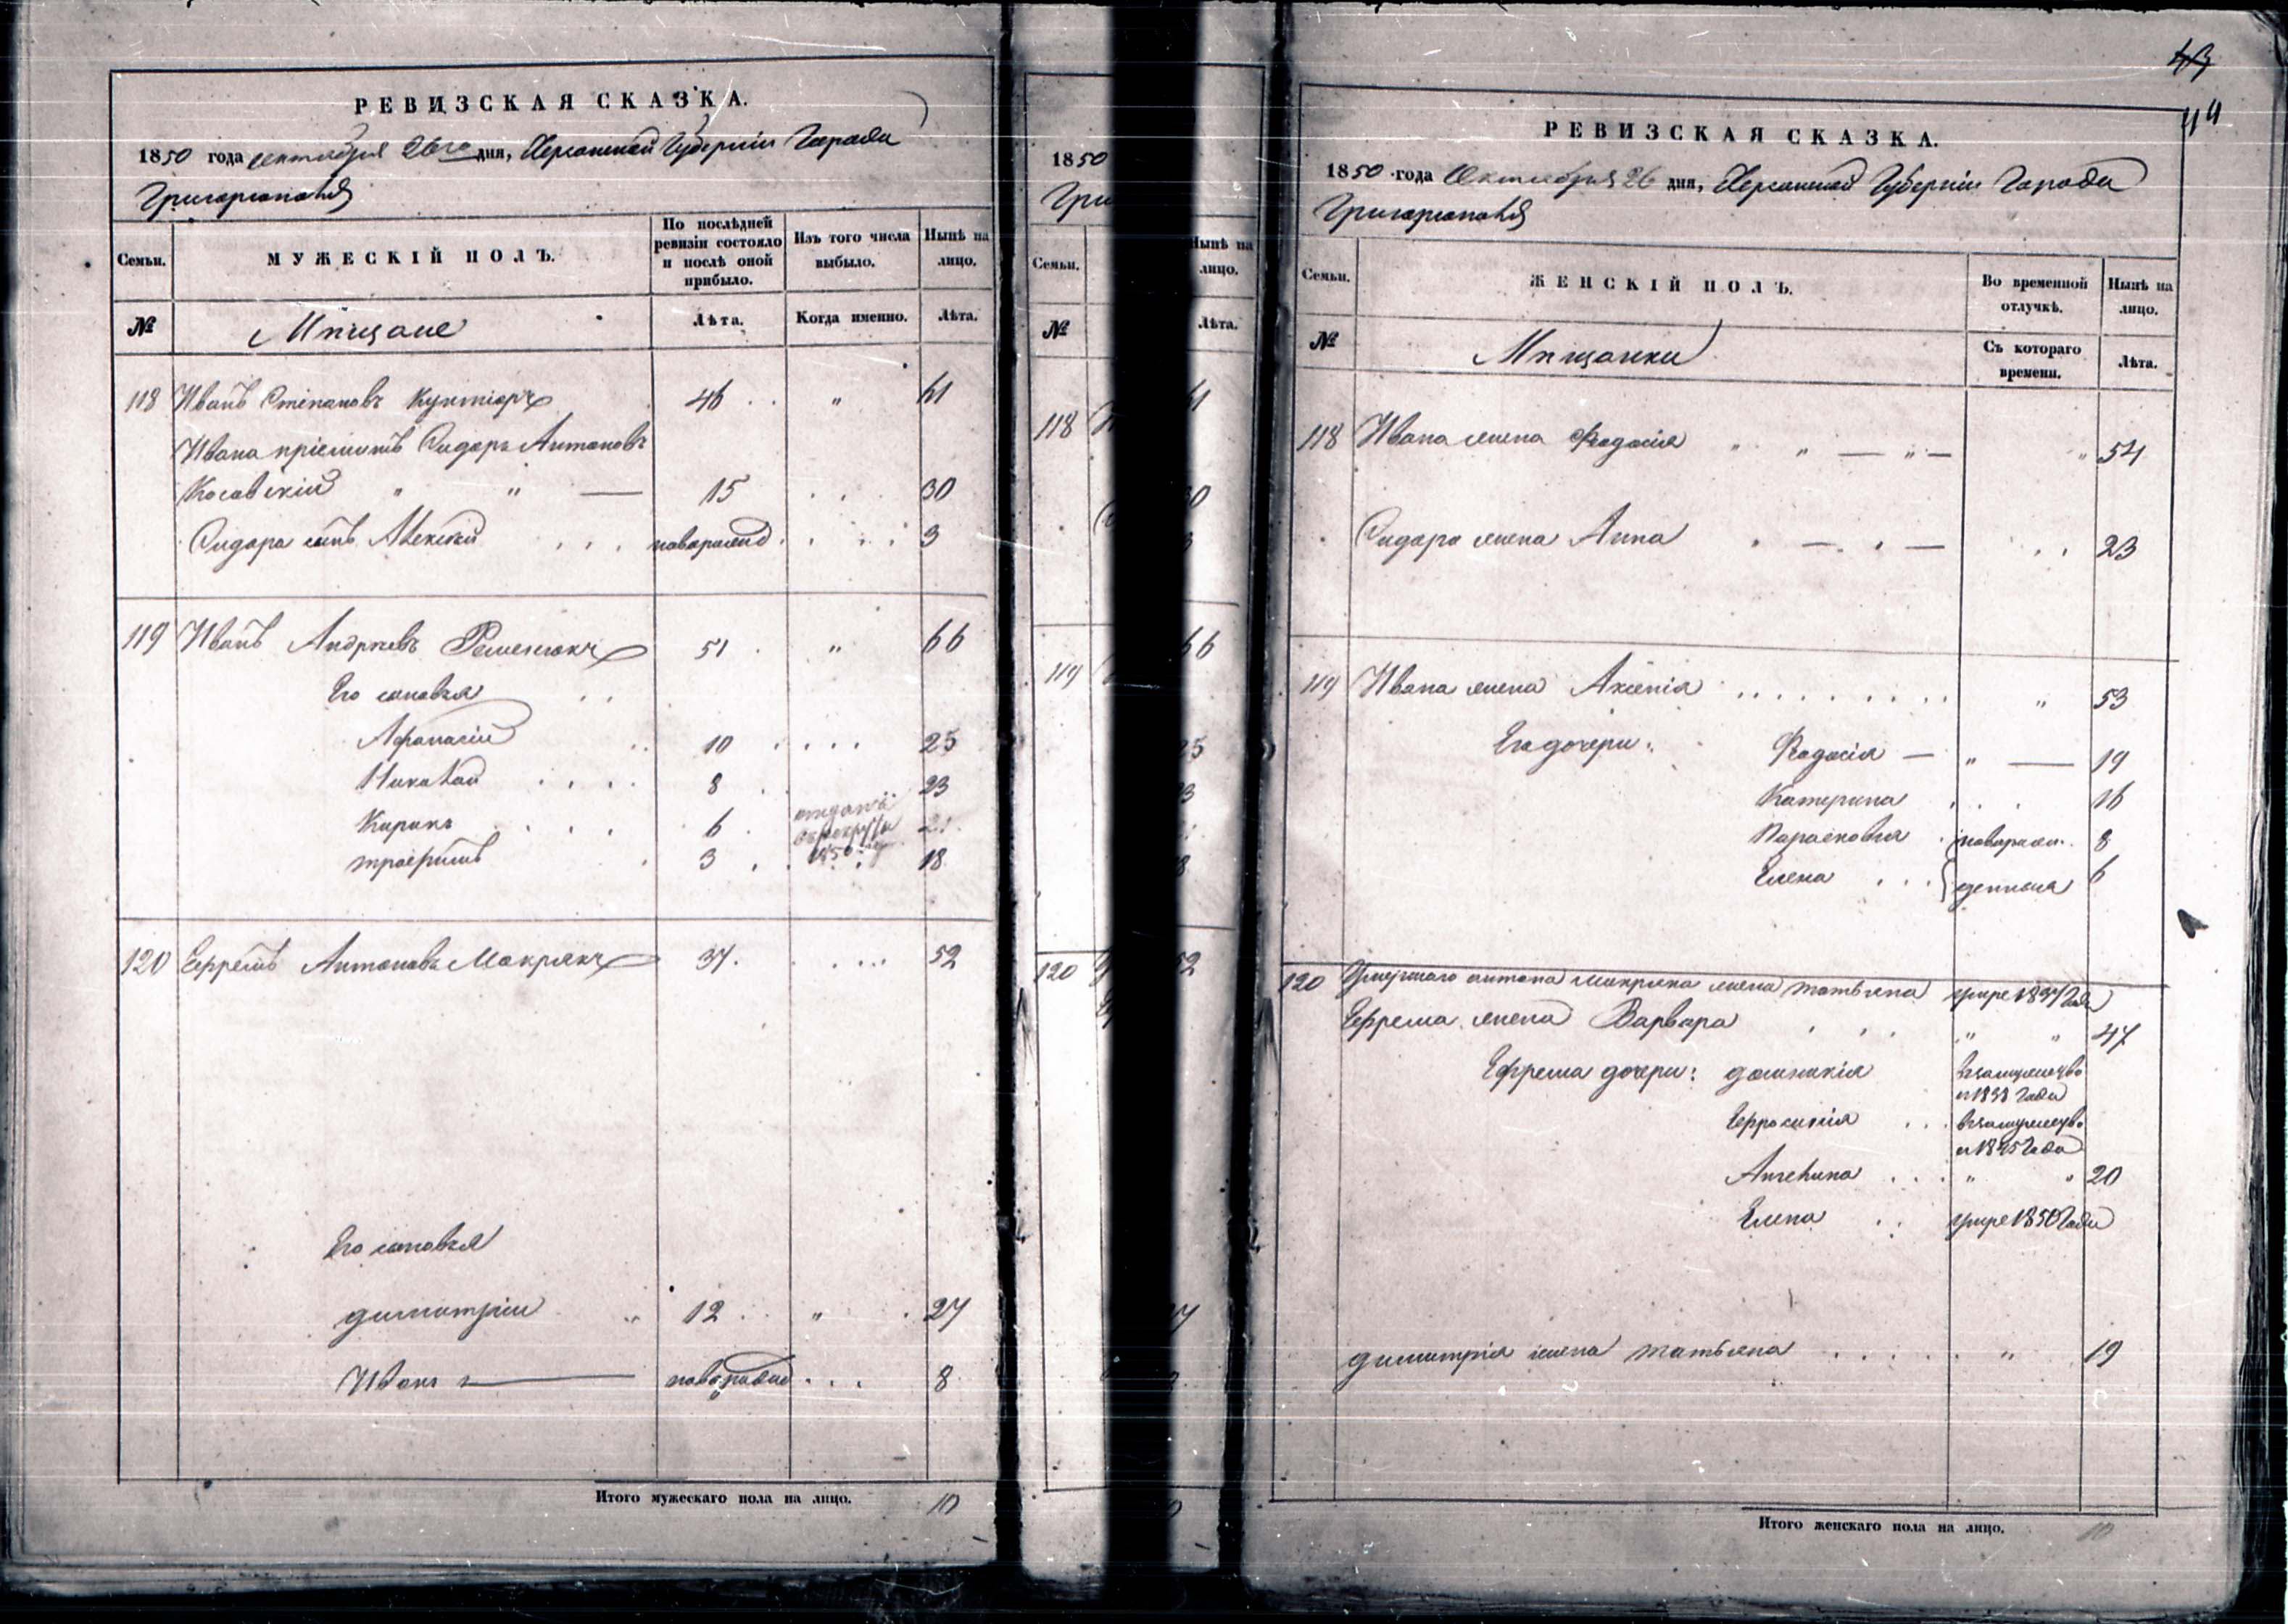 РЕВИЗСКАЯ СКАЗКА.
1850 года октября 26го дня, Херсонской Губерніи Города
Григоріополя
Семьи.
МУЖЕСКІЙ ПОЛЪ.
По послѣдней ревизіи состояло и послѣ оной прибыло.
Изъ того числа выбыло.
Нынѣ на лицо.
№
Мѣщане
Лѣта.
Когда именно.
Лѣта.
118 Иванъ Степановъ 46 " 61
Ивана пріемышъ Сидоръ Антоновъ
Косовскій " " — 15 30
Сидора сынъ Алексѣй новорожд 3
119 Иванъ Андреевъ Ременюкъ 51 " 66
Его сыновья
Афанасій 10 25
Николай 8 23
Кирикъ 6 отданъ в рекруты 1850 21
Трофимъ 3 18
120 Ефремъ Антоновъ Мокрякъ 37 52
Его сыновья
Димитрій " 12 " 27
Иванъ — новорожд 8
Итого мужескаго пола на лицо. 10
1850
Гри
Семьи.
Нынѣ на
лицо.
№
Лѣта.
118
119
120
43
44
РЕВИЗСКАЯ СКАЗКА.
1850 года Октября 26 дня, Херсонской Губерніи Города
Григоріополя
Семьи.
ЖЕНСКІЙ ПОЛЪ.
Во временной отлучкѣ.
Нынѣ на лицо.
№
Мѣщанки
Съ котораго времени.
Лѣта.
118 Ивана жена Федосія " " — " — " 54
Сидора жена Анна — — 23
119 Ивана жена Аксенія " 53
Его дочери: Федосія — " — 19
Катерина 16
Парасковія новорож 8
Елена денныя 6
120 Умершаго Антона Мокряка жена Татьяна умре 1837 Года
Ефрема жена Варвара " " 47
Ефрема дочери: Домникія взамужество
в 1838 Года
Ефросинія взамужество
в 1845 Года
Ангелина " " 20
Елена умре 1850 Года
Димитрія жена Татьяна " 19
Итого женскаго пола на лицо. 10